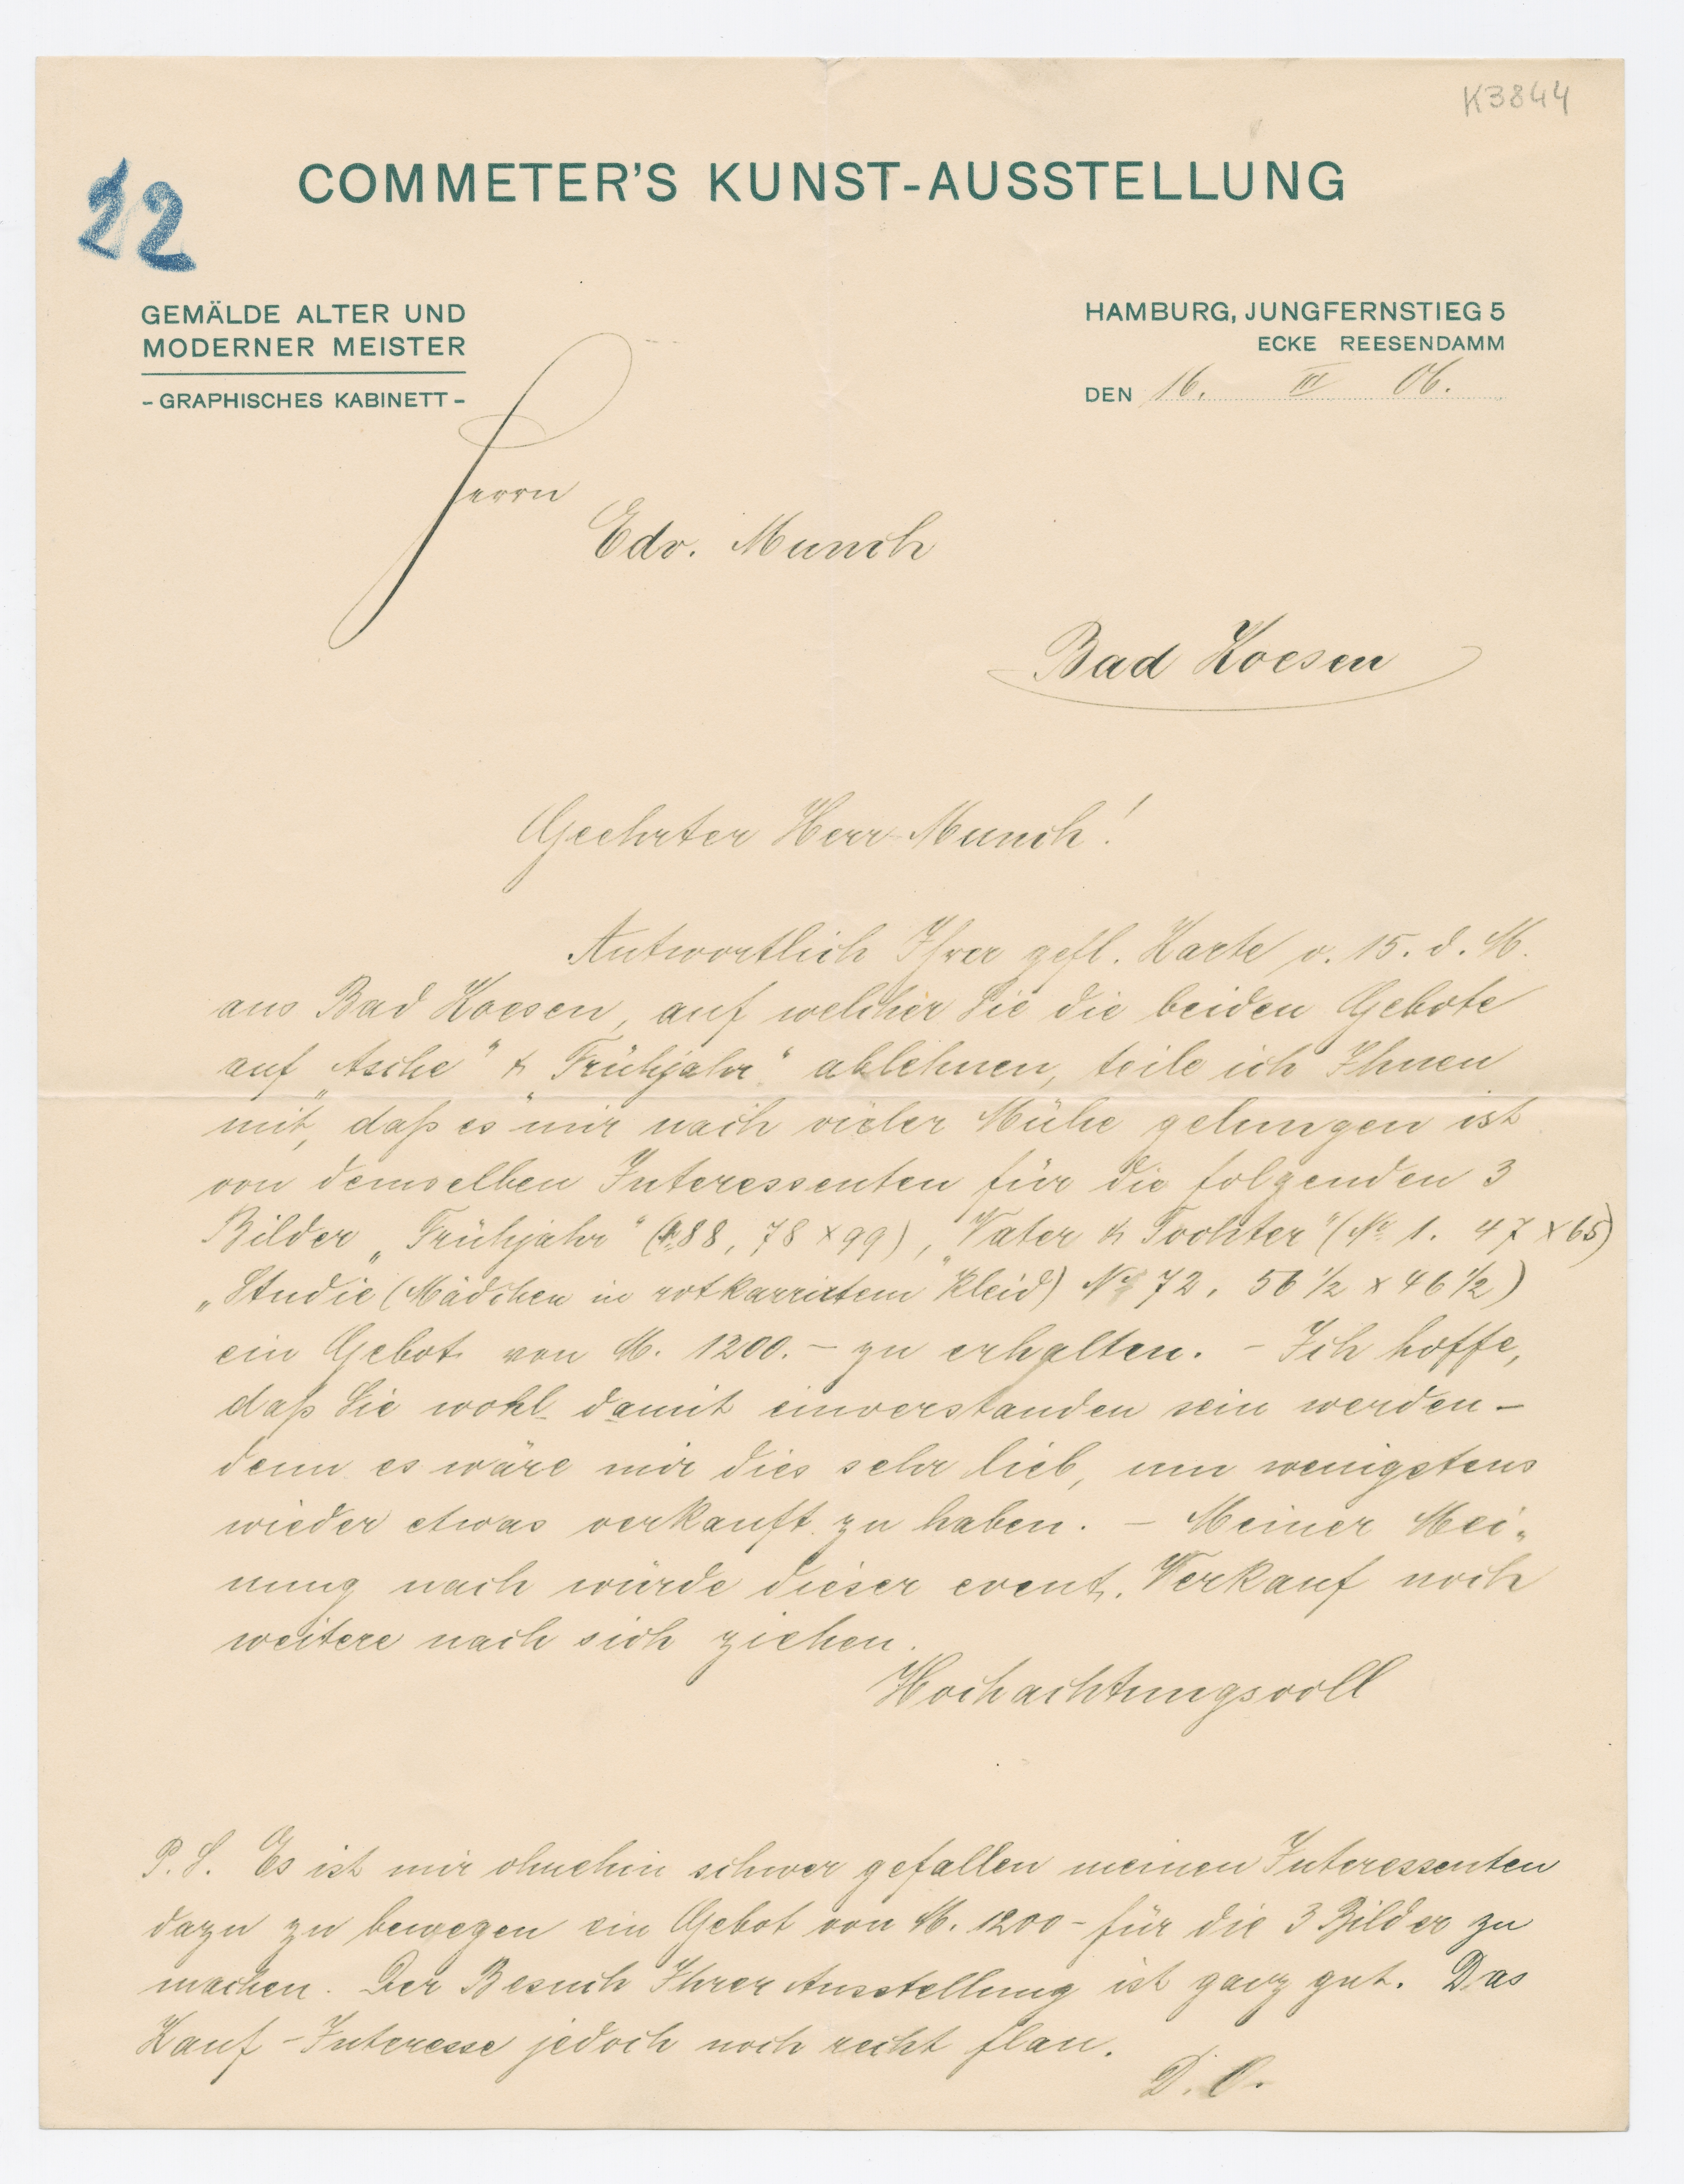 K3844
22
COMMETER'S KUNST-AUSSTELLUNG
GEMÄLDE ALTER UND
MODERNER MEISTER
- GRAPHISCHES KABINETT -
HAMBURG, JUNGFERNSTIEG 5
ECKE REESENDAMM
DEN 16. III 06.
Herrn
Edv. Munch
Bad Koesen
Geehrter Herr Munch!
Antwortlich Ihrer gefl. Karte v. 15. d. M.
aus Bad Koesen, auf welcher Sie die beiden Gebote
auf „Asche" & „Frühjahr" ablehnen, teile ich Ihnen
mit, daß es mir nach vieler Mühe gelungen ist
von demselben Interessenten für die folgenden 3
Bilder „Frühjahr" (88, 78 × 99), „Vater & Tochter" (№ 1. 47 × 65)
„Studie (Mädchen in rotkarriertem Kleid) № 72, 56 ½ × 46 ½)
ein Gebot von M. 1200.- zu erhalten. - Ich hoffe,
daß Sie wohl damit einverstanden sein werden -
denn es wäre mir dies sehr lieb, um wenigstens
wieder etwas verkauft zu haben. - Meiner Mei-
nung nach würde dieser event. Verkauf noch
weitere nach sich ziehen.
Hochachtungsvoll
P.S. Es ist mir ohnehin schwer gefallen meinen Interessenten
dazu zu bewegen ein Gebot von M. 1200- für die 3 Bilder zu
machen. Der Besuch Ihrer Ausstellung ist ganz gut. Das
Kauf-Interesse jedoch noch recht flau.
D. O.